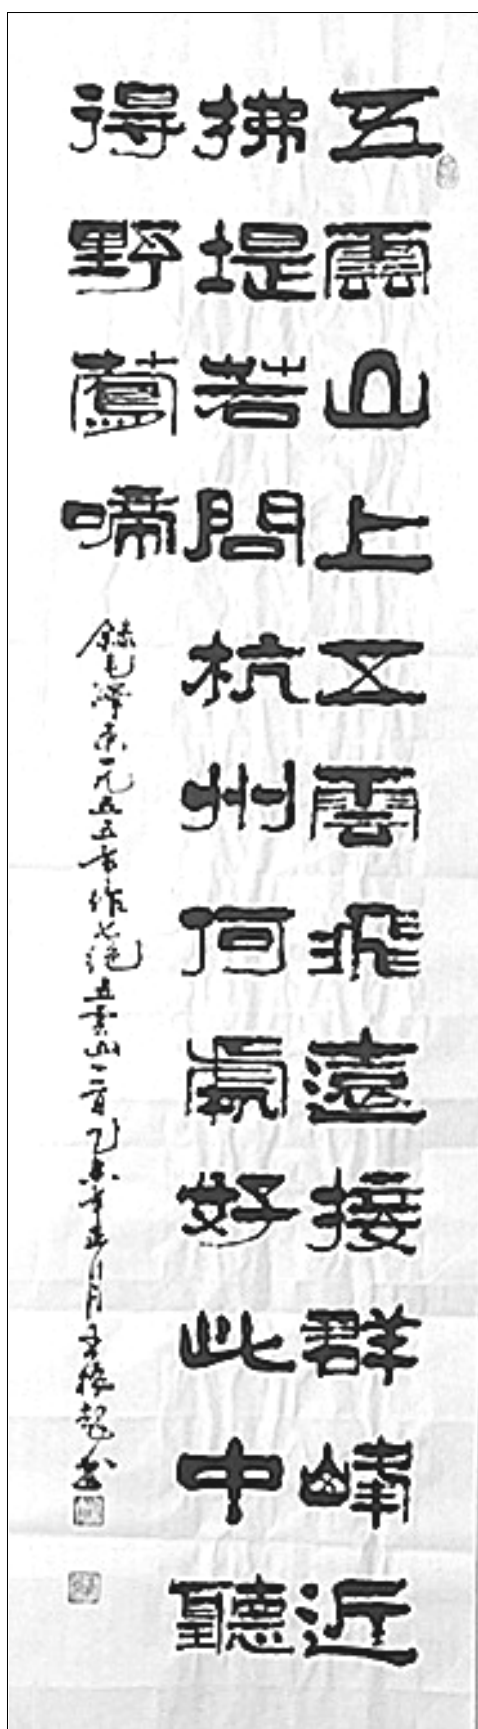 五雲山上五雲飛遠接群峰近
拂堤若問杭州何處好此中聽
得野鶯啼
錄毛澤東一九五五年作七絕五雲山一首乙未年月書